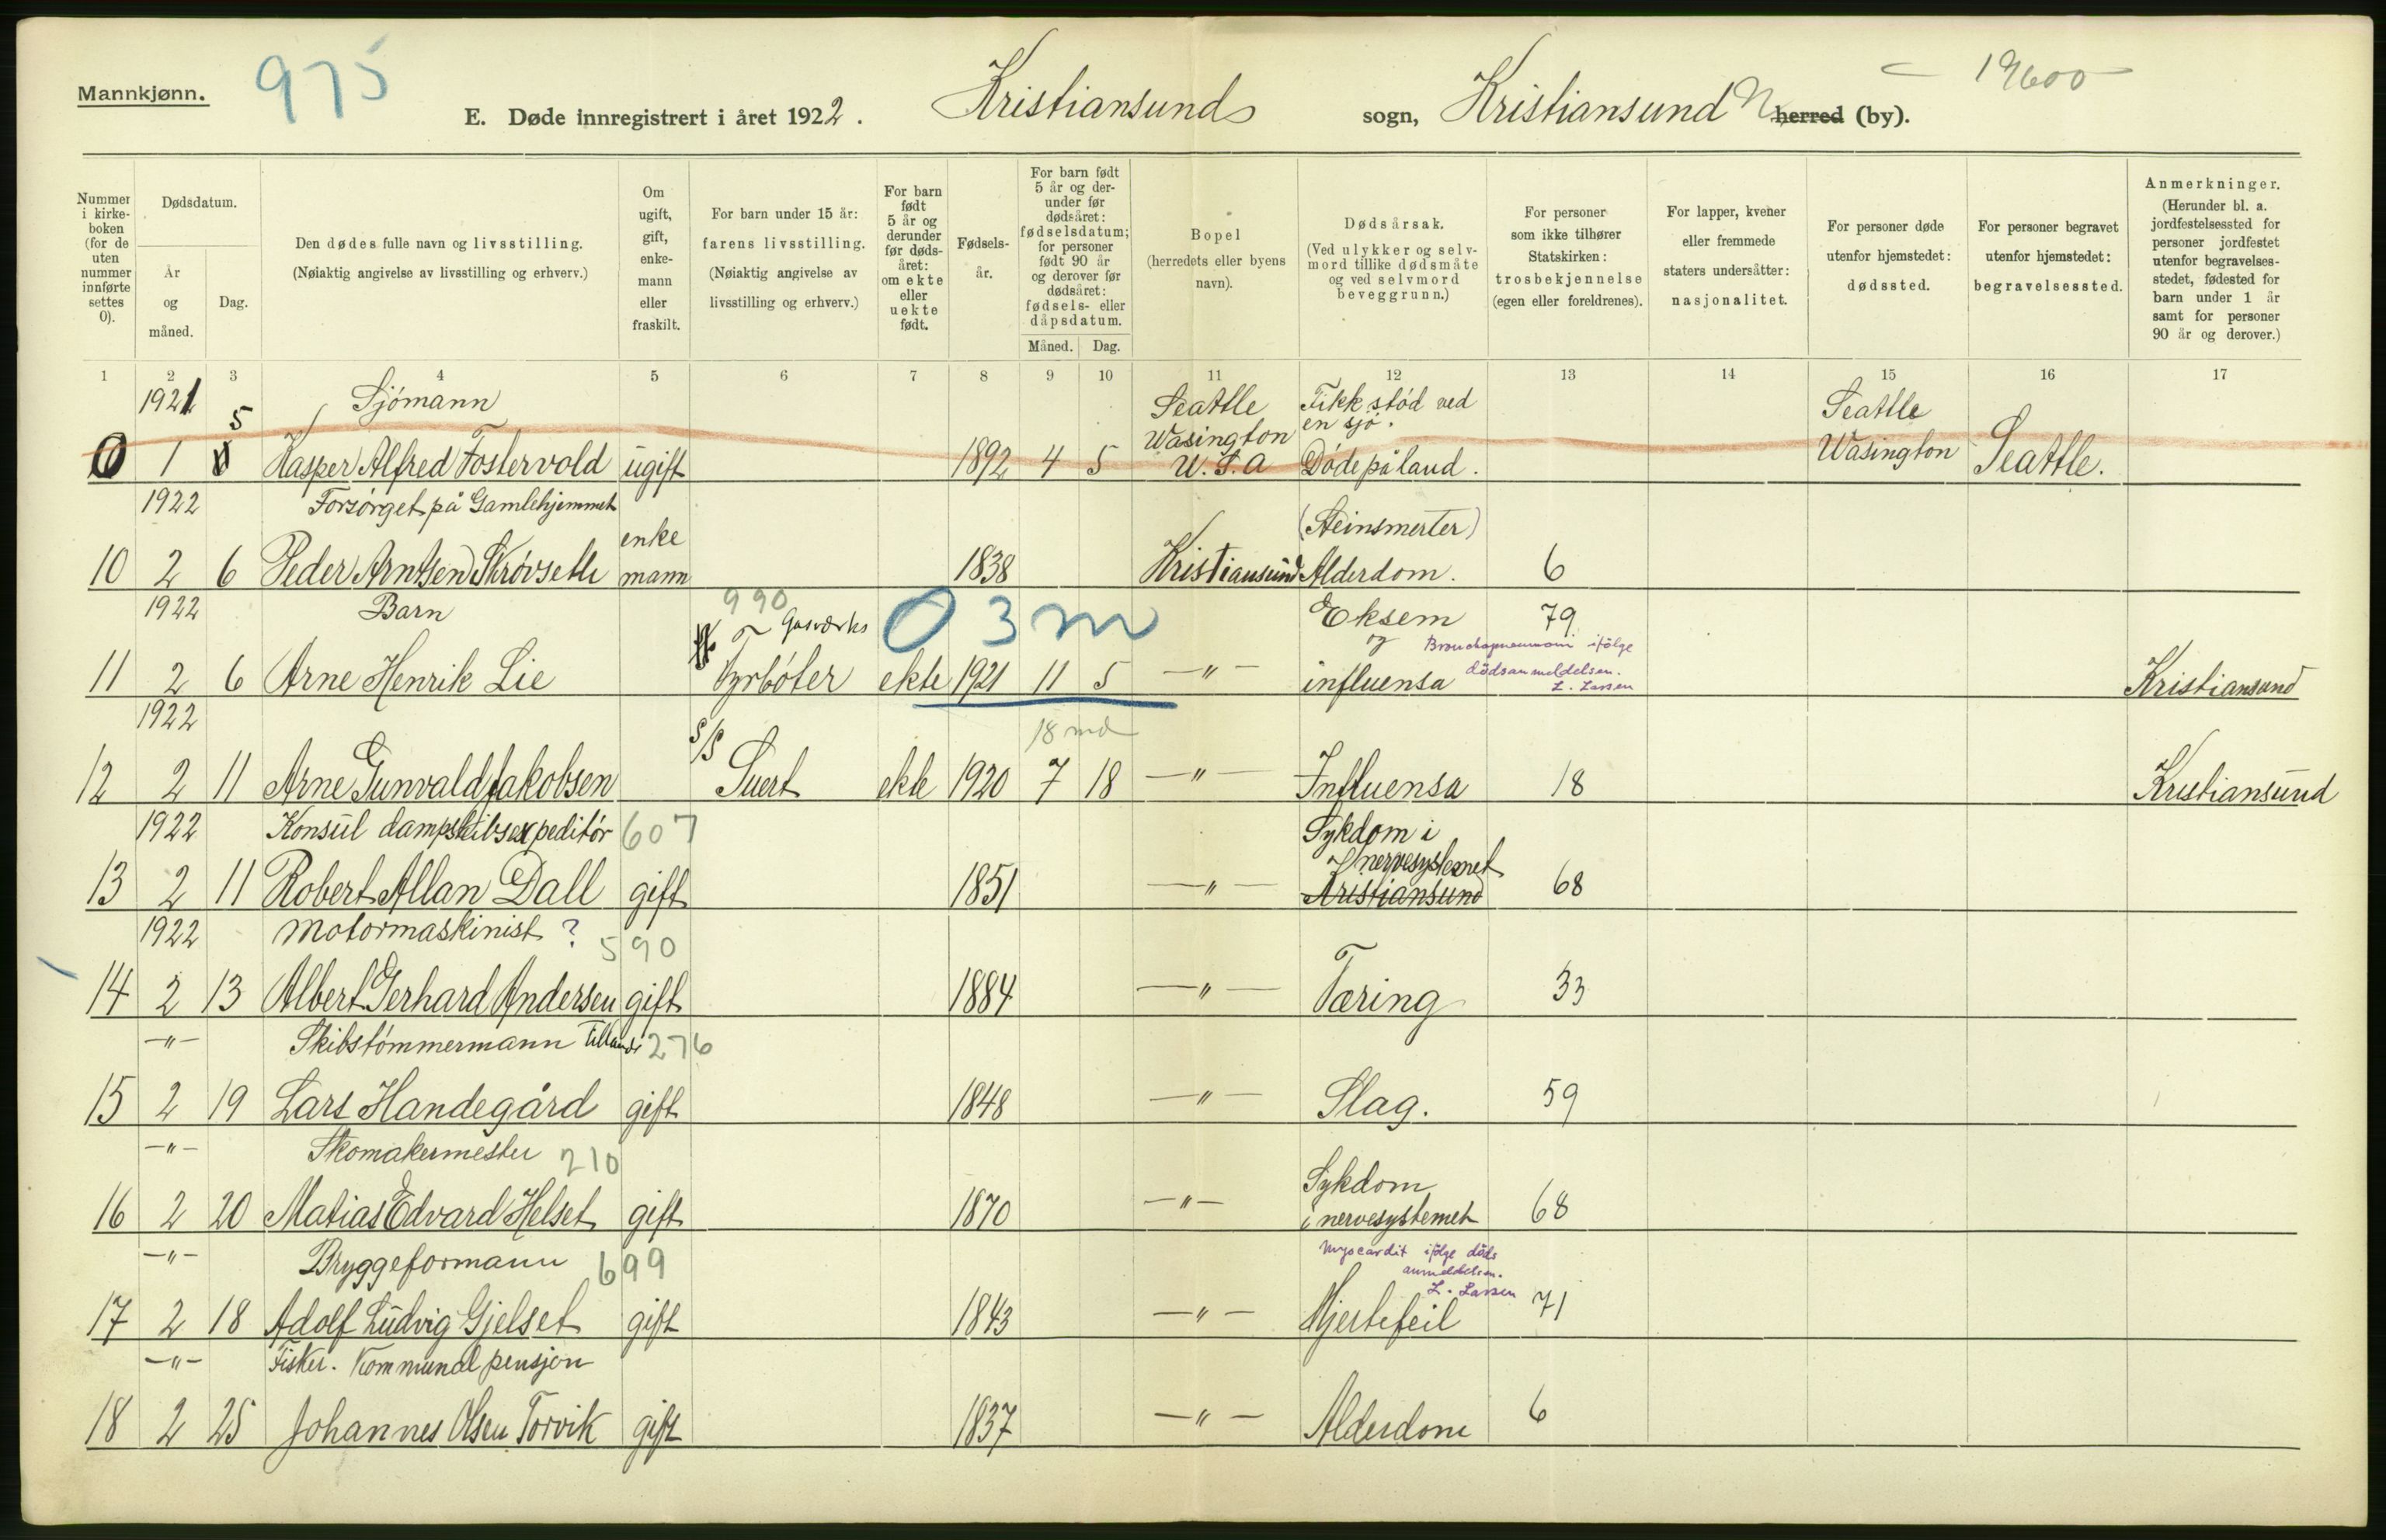 Mannkjønn.
975
E. Døde innregistrert i året 1922.
Kristiansunds sogn, Kristiansund N herred (by).
19600
Nummer i kirkeboken (for de uten nummer innførte settes 0).
Dødsdatum.
År og måned.
Dag.
Den dødes fulle navn og livsstilling.
(Nøiaktig angivelse av livsstilling og erhverv.)
Om ugift, gift, enkemann eller fraskilt.
For barn under 15 år: farens livsstilling.
(Nøiaktig angivelse av livsstilling og erhverv.)
For barn født 5 år og derunder før dødsåret: om ekte eller uekte født.
Fødselsår.
For barn født 5 år og derunder før dødsåret: fødselsdatum; for personer født 90 år og derover før dødsåret: fødsels- eller dåpsdatum.
Måned. Dag.
Bopel (herredets eller byens navn).
Dødsårsak.
(Ved ulykker og selvmord tillike dødsmåte og ved selvmord beveggrunn.)
For personer som ikke tilhører Statskirken: trosbekjennelse (egen eller foreldrenes).
For lapper, kvener eller fremmede staters undersåtter: nasjonalitet.
For personer døde utenfor hjemstedet: dødssted.
For personer begravet utenfor hjemstedet: begravelsessted.
Anmerkninger.
(Herunder bl. a. jordfestelsessted for personer jordfestet utenfor begravelsesstedet, fødested for barn under 1 år samt for personer 90 år og derover.)
1 2 3 4 5 6 7 8 9 10 11 12 13 14 15 16 17
1921 5 Sjómann Seattle Fikk stód ved Seattle
en sjó.
0 1 Kasper Alfred Fostervold ugift 1892 4 5 Wasington U.S.A Döde på land. Wasington Seattle.
1922 Forsórget på Gamlehjemmet
enke (Steinsmerter)
10 2 6 Peder Arntsen Skrøvseth mann 1838 Kristiansund Alderdom. 6
1922 Barn 990 Gasværks 0 3 m Eksem 79
og Bronchopneumoni ifölge
11 2 6 Arne Henrik Lie Fyrbóter ekte 1921 11 5 —"— influensa dödsanmeldelsen. Kristiansund
L. Larsen
1922 S/S 18 md
12 2 11 Arne Gunvald Jakobsen Stuert ekte 1920 7 18 —"— Influensa 18 Kristiansund
1922 Konsul dampskibsexpeditór 607 Sykdom i
nervesystemet
13 2 11 Robert Allan Dall gift 1851 —"— Kristiansund 68
1922 Motormaskinist ? 590
14 2 13 Albert Gerhard Andersen gift 1884 —"— Tæring 33
—"— Skibstómmermann tillands 276
15 2 19 Lars Handegård gift 1848 —"— Slag. 59
—"— Skomakermester 210 Sykdom
16 2 20 Matias Edvard Helset gift 1870 —"— i nervesystemet 68
—"— Bryggeformann 699 Myocardit ifölge döds
anmeldelsen.
L. Larsen
17 2 18 Adolf Ludvig Gjelset gift 1843 —"— Hjertefeil 71
—"— Fisker. Kommunal pensjon
18 2 25 Johannes Olsen Torvik gift 1837 —"— Alderdom 6